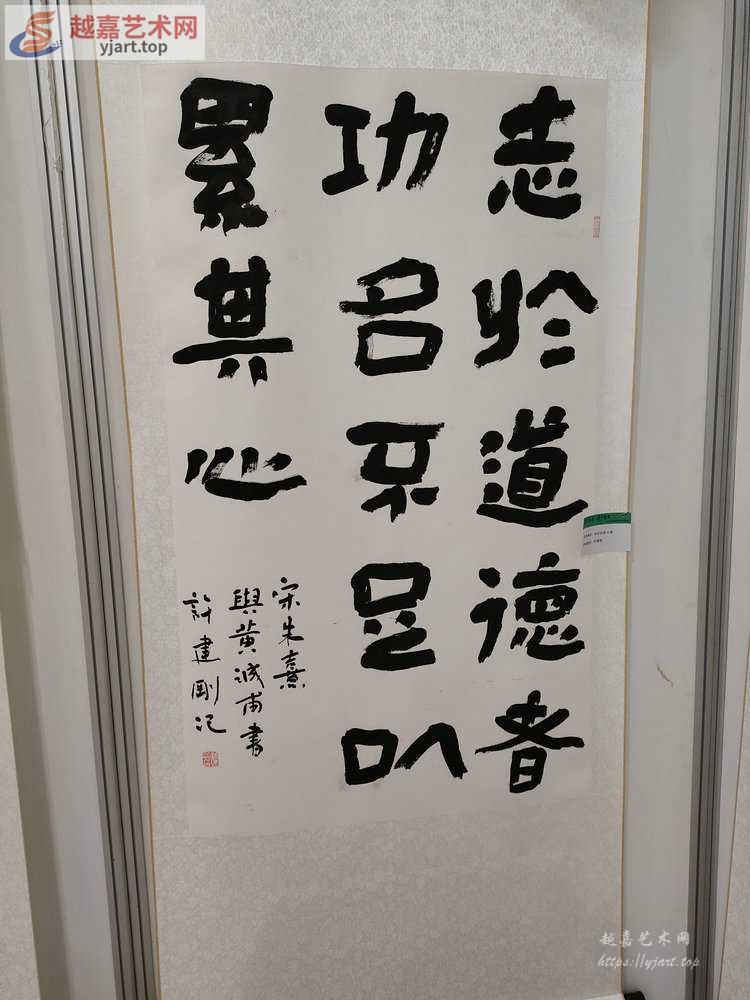 越嘉艺术网
yjart.top
志於道德者
功名不足以
累其心
宋朱熹
與黄诚甫書
許建剛记
越嘉艺术网
https://yjart.top